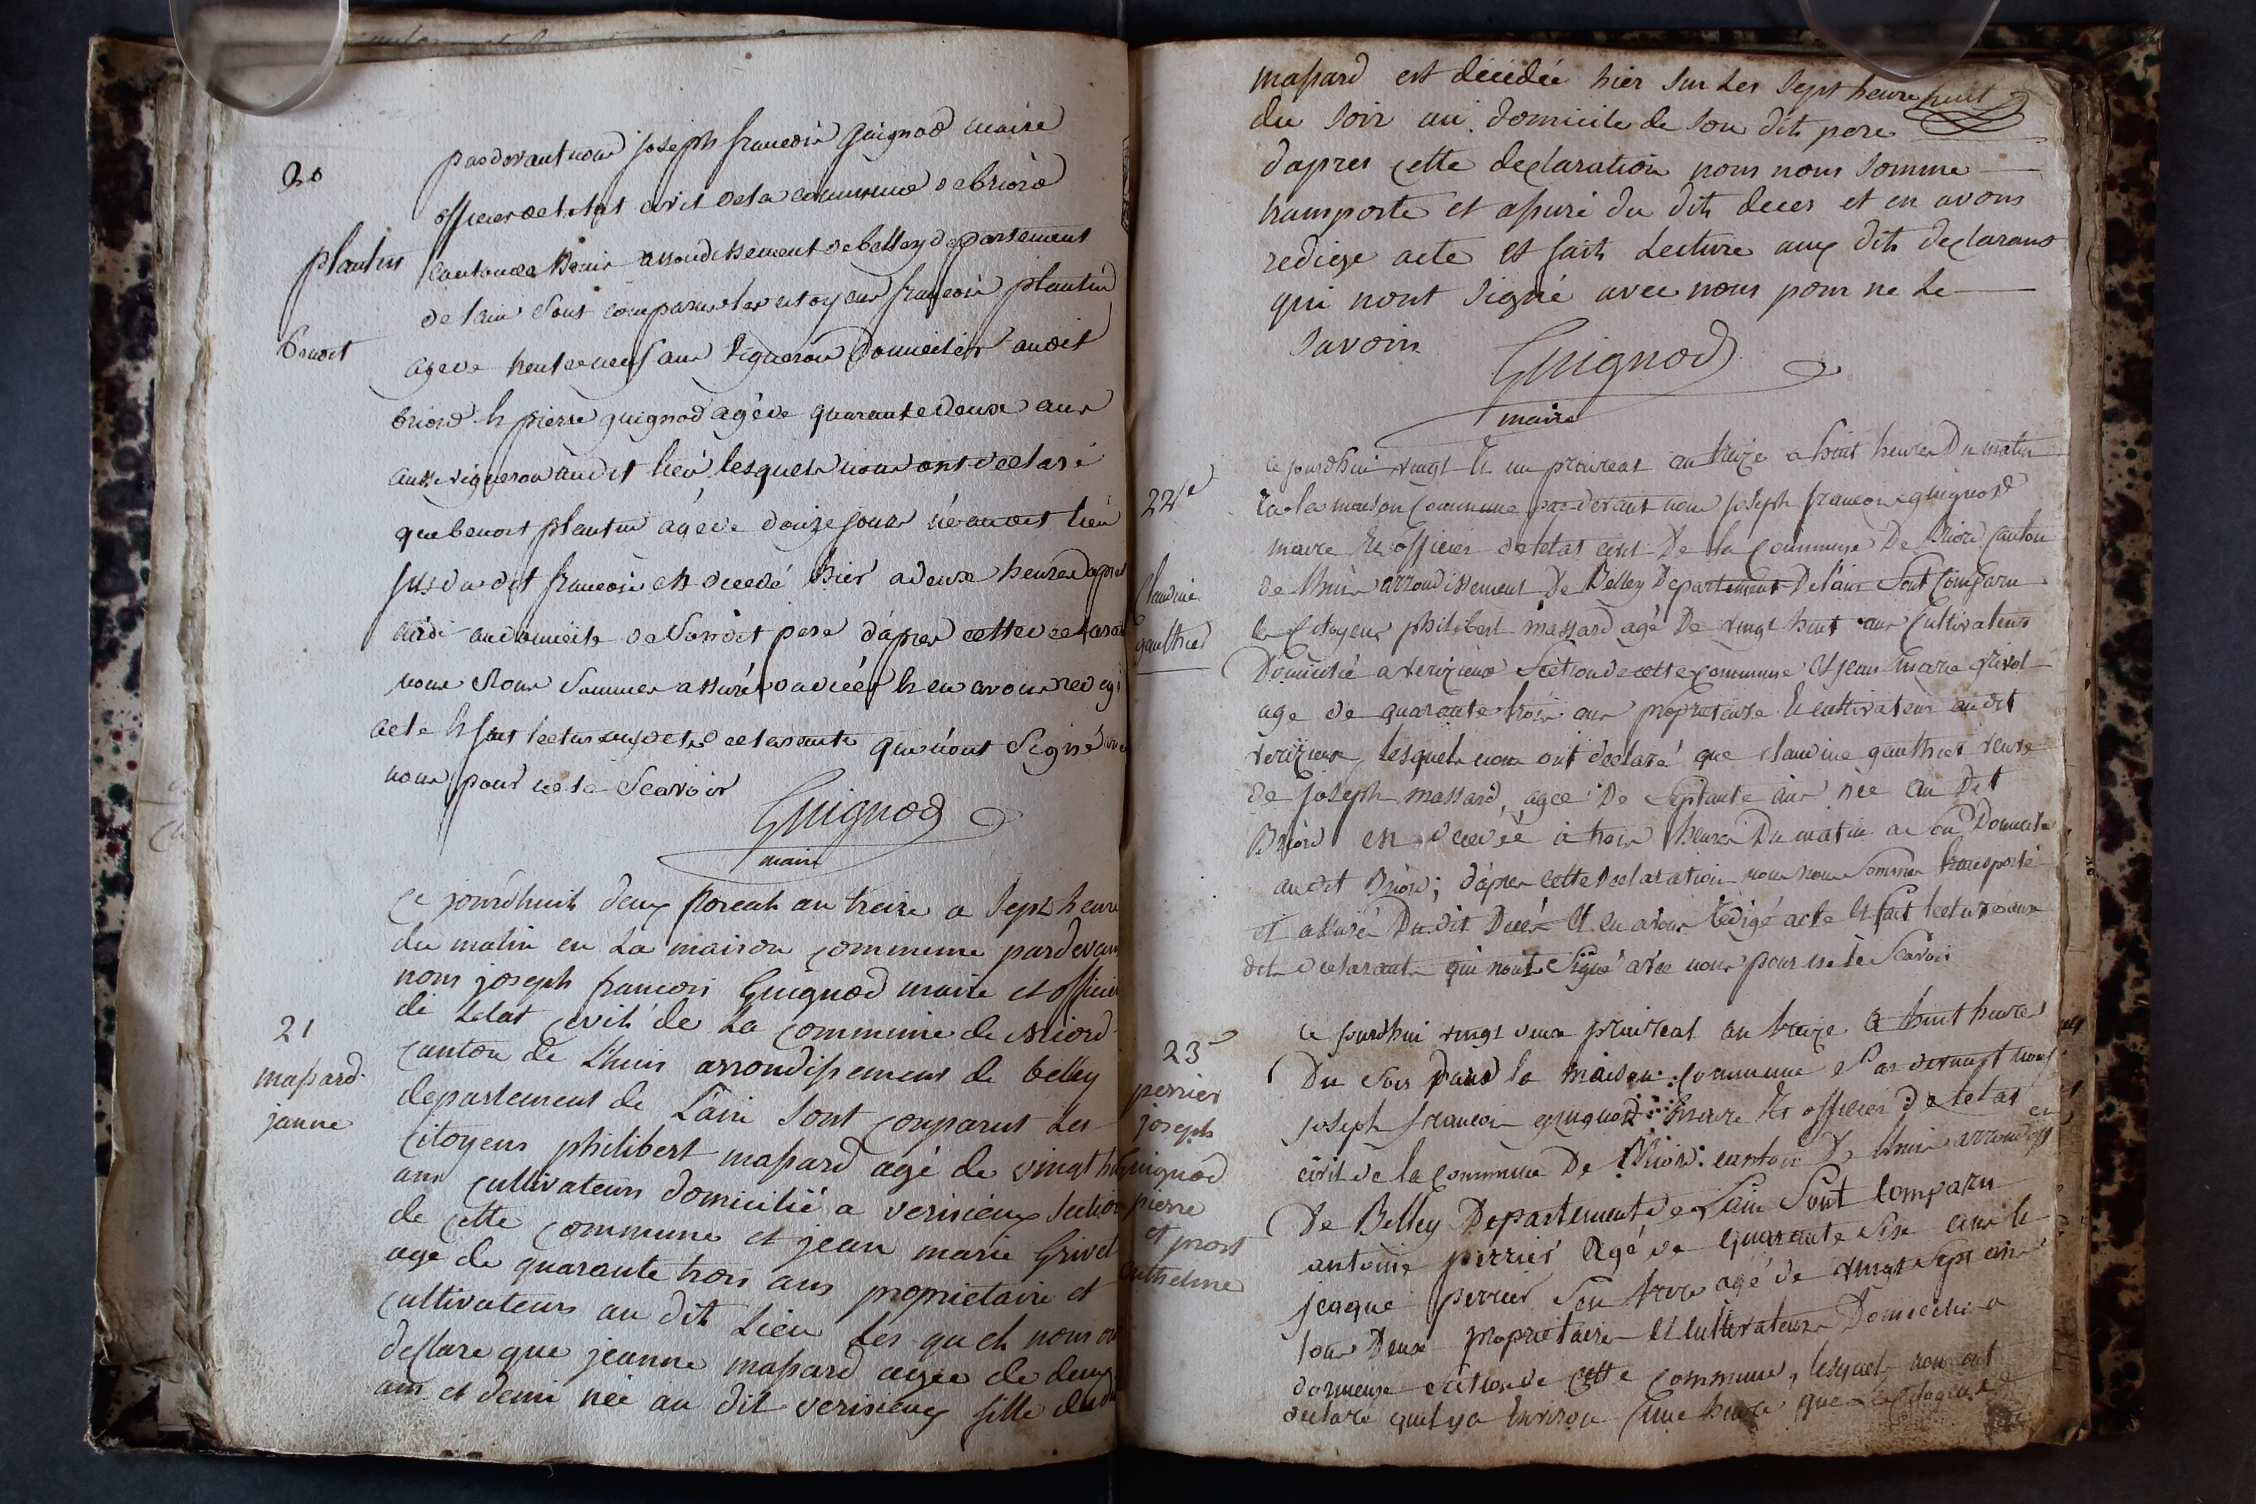 20
plantin
benoit
pardevant nous joseph francois Guignod maire
officier de letat civil de la commune de briord
canton de lhuis arrondissement de belley departement
de lain sont comparus les citoyens francois plantin
agé de trente neuf ans vigneron domicilier audit
briord et pierre guignod agé de quarante deux ans
aussi vigneron audit lieu lesquels nous ont declaré
que benoit plantin agé de douze jours né audit lieu
fils du dit francois est decedé hier a deux heures apres
midi au domicile de son dit pere d'apres cette declarat
nous nous sommes assuré du deces et en avons redigé
acte et fait lecture aux dits declarants qui n'ont signé avec
nous pour ne le scavoir
Guignod
maire
21
massard
janne
Ce jourdhuit deux floreal an treize a sept heure
du matin en la maison commune pardevant
nous joseph francois Guignod maire et officier
de letat civil de la commune de Briord
canton de Lhuis arrondissement de belley
departement de Lain sont comparus Les
Citoyens philibert massard agé de vingt huit
ans cultivateurs domicilié a verisieux section
de cette commune et jean marie Grivel
age de quarante trois ans proprietaire et
cultivateurs au dit Lieu Les quels nous ont
declare que jeanne massard agée de deux
ans et demi née au dit verisieux fille dudit
massard est décédée hier sur les sept heure huit
du soir au domicile de son dit pere
d'apres cette declaration nous nous somme
transporte et assuré du dit deces et en avons
redige acte et fait Lecture aux dits declarans
qui nont signé avec nous pour ne Le
savoir
Guignod
maire
22e
Claudine
gauthier
ce jourdhui vingt et un prairial an treize a huit heures Du matin
en la maison Commune pardevant nous joseph francois guignod
maire et officier de letat civil De la Commune De Briord Canton
de lhuis arrondissement De Belley Departement De l'ain Sont Comparu
le Citoyens philibert massard agé De vingt huit ans Cultivateur
Domicilié a verizieux Section de cette Commune et jean marie grivel
age de quarante trois ans proprietaire et cultivateur audit
verizieux lesquels nous ont declaré que claudine gauthier veuve
de joseph massard, agée De Septante ans née au Dit
Briord est decedée à trois heures Du matin a son Domicile
audit Briord; d'après cette declaration nous nous sommes transporté
et assuré Du dit Decés et en avons redigé acte et fait lecture aux
dits declarants qui nont Signé avec nous pour ne le Scavoir
23
perrier
joseph
Guignod
pierre
et prost
Cutheline
Ce jourdhui vingt deux prairial an treize a huit heures
Du soir dans la maison commune Par devant nous
joseph francois guignod maire et officier de letat
civil de la commune De Briord canton De lhuis arrondissem
De Belley Departement de Lain Sont Comparu
antoine perrier Agé de quarante six ans et
jacque perrier son frere agé de vingt sept ans
tous Deux proprietaire et cultivateurs Domicilié a
dornieux section de cette commune, lesquels nous ont
declaré quil y a environ une heure que